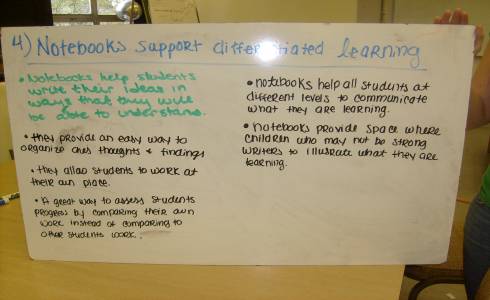 4) Notebooks support differentiated learning
• Notebooks help students
write their ideas in
ways that they will
be able to understand.
• they provide an easy way to
organize ones thoughts & findings
• they allow students to work at
their own place.
• A great way to assess students
progress by comparing their own
work instead of comparing to
other students work.
• notebooks help all students at
different levels to communicate
what they are learning.
• Notebooks provide space where
children who may not be strong
writers to illustrate what they are
learning.